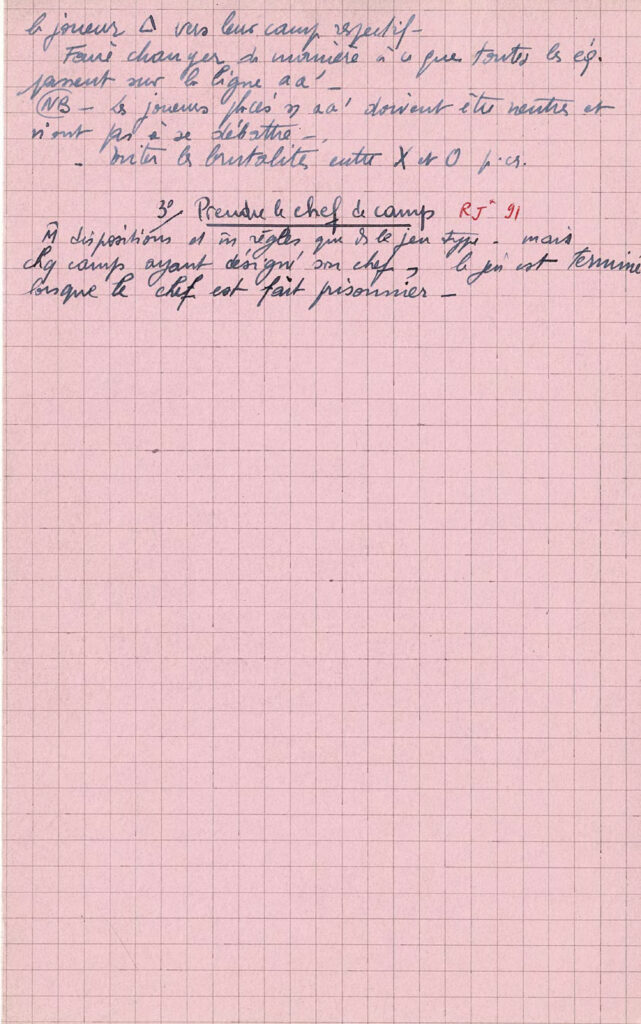 le joueur Δ vers leur camp respectif -
Faire changer de manière à ce que toutes les éq.
passent sur la ligne aa' -
(NB) - Les joueurs placés s/ aa' doivent être neutres et
n'ont pas à se débattre -
- éviter les brutalités entre X et O p.ex.
3°/ Prendre le chef de camps RJ 91
M̂ dispositions et m̂ règles que ds le jeu type - mais
chq camps ayant désigné son chef, le jeu est terminé
lorsque le chef est fait prisonnier -